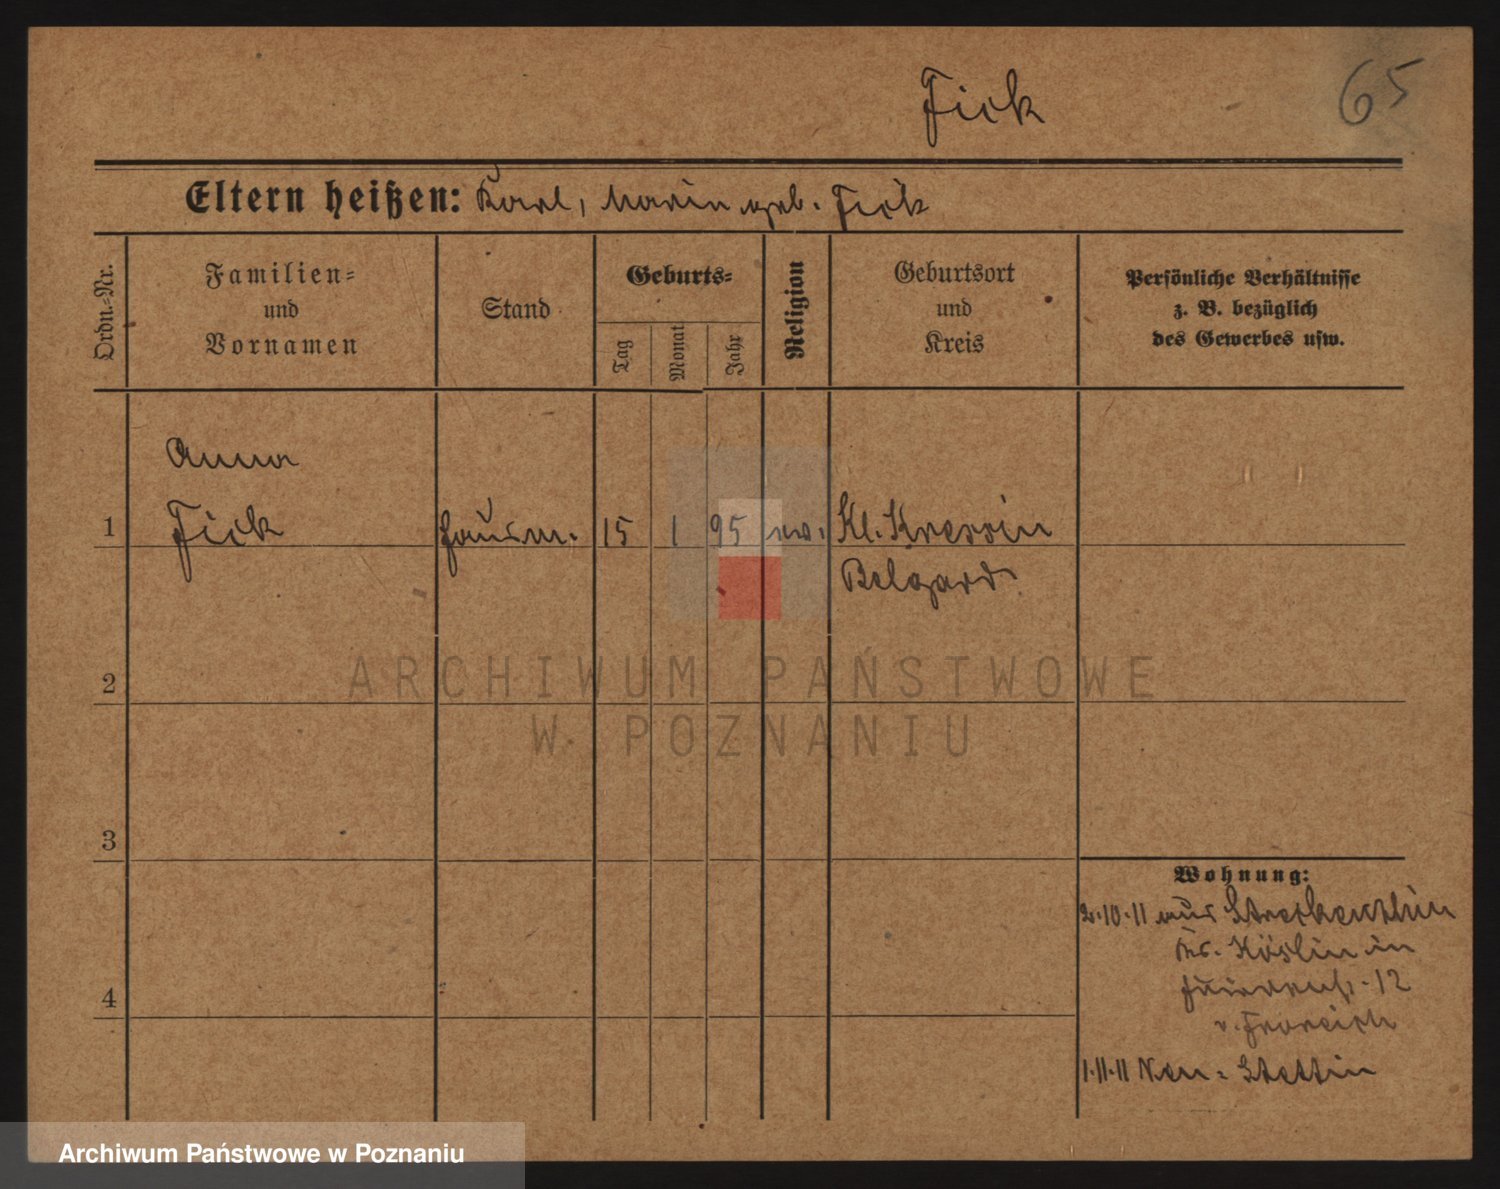 Fick
65
Eltern heißen: Karl, Marie geb. Fick
Ordn.-Nr.
Familien-
und
Vornamen
Stand
Geburts-
Tag
Monat
Jahr
Religion
Geburtsort
und
Kreis
Persönliche Verhältnisse
z. B. bezüglich
des Gewerbes usw.
Anna
1 Fick Hausm. 15 1 95 ev. Kl. Kressin
Belgard
2
3
4
Wohnung:
2.10.11 aus Streckenthin
Krs. Köslin in
12
v.
1.11.11 Neu-Stettin
ARCHIWUM PAŃSTWOWE
W POZNANIU
Archiwum Państwowe w Poznaniu